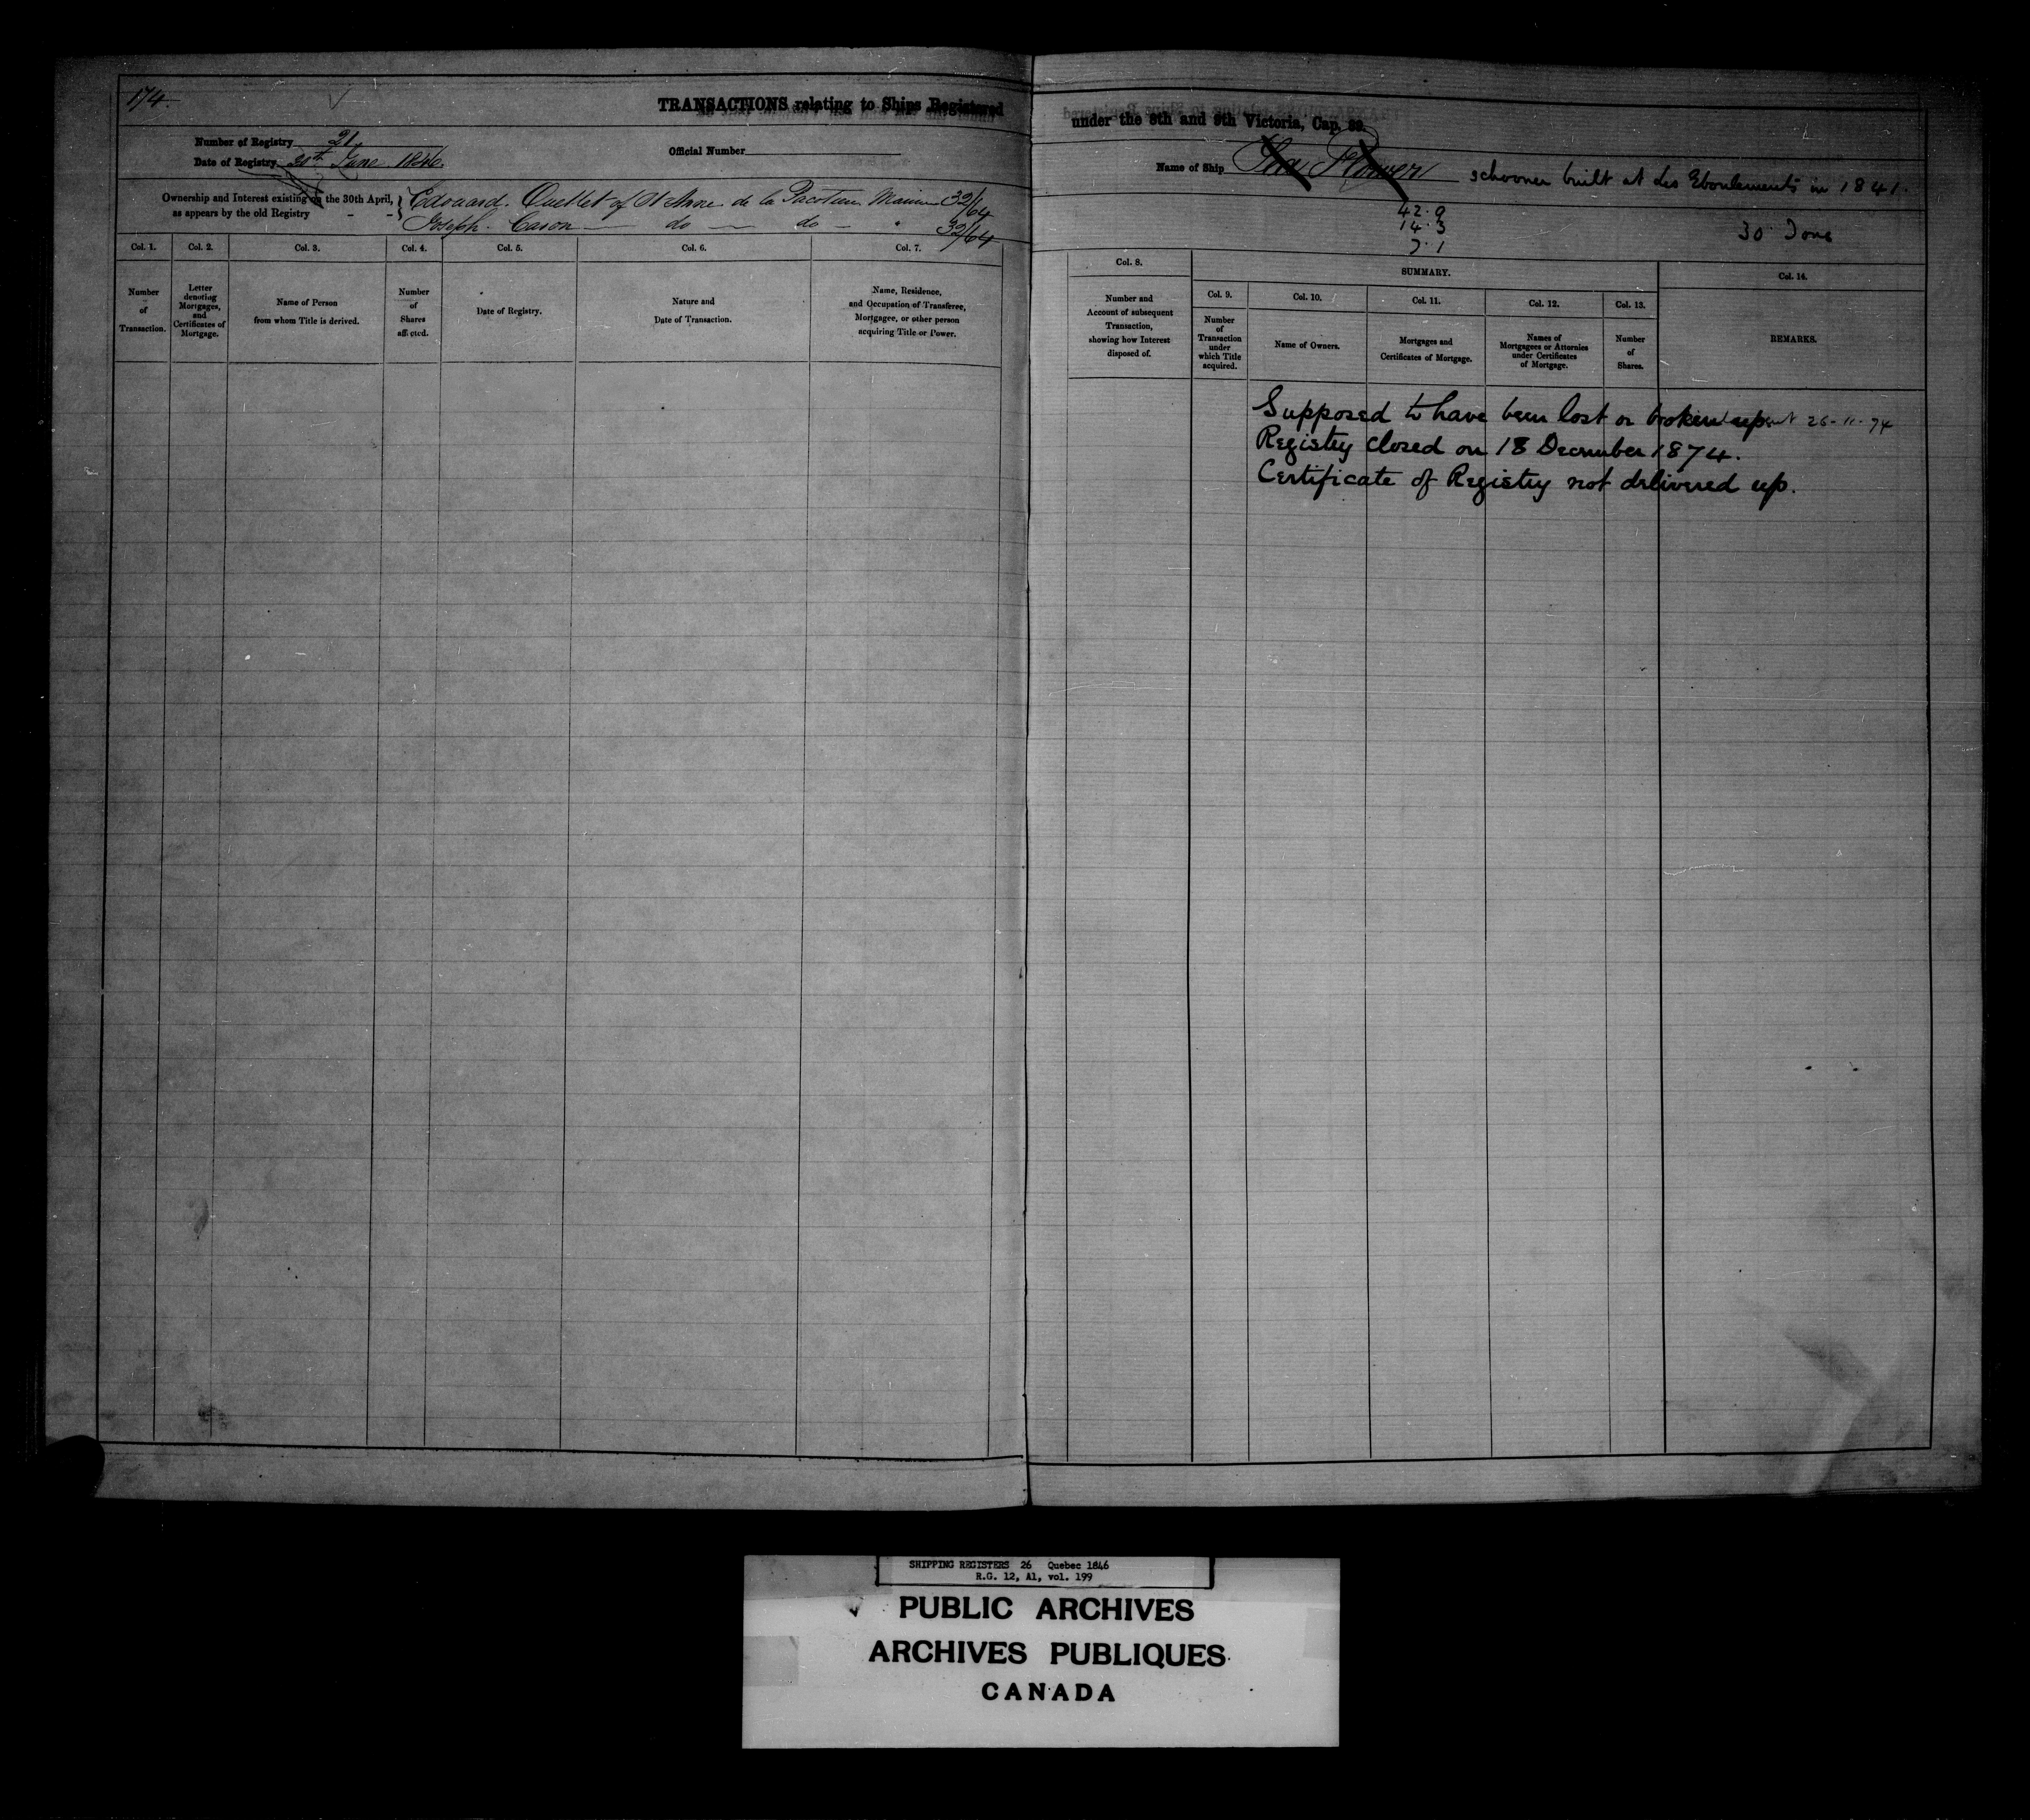 174.
TRANSACTIONS relating to Ships Registered
Number of Registry 21
Date of Registry June 1846
Official Number
Ownership and Interest existing on the 30th April,
as appears by the old Registry - -
Edouard. Ouellet of St Anne de la Pocatiere 32/64
Joseph. Caron — do — do - " 32/64
Col. 1.
Col. 2.
Col. 3.
Col. 4.
Col. 5.
Col. 6.
Col. 7.
Number
of
Transaction.
Letter
denoting
Mortgages,
and
Certificates of
Mortgage.
Name of Person
from whom Title is derived.
Number
of
Shares
affected.
Date of Registry.
Nature and
Date of Transaction.
Name, Residence,
and Occupation of Transferee,
Mortgagee, or other person
acquiring Title or Power.
under the 8th and 9th Victoria, Cap. 89.
Name of Ship Sea Flower schooner built at Les Eboulements in 1841.
42.9
14.3
7.1
30 Tons
Col. 8.
Number and
Account of subsequent
Transaction,
showing how Interest
disposed of.
SUMMARY.
Col. 9.
Col. 10.
Col. 11.
Col. 12.
Col. 13.
Col. 14.
Number
of
Transaction
under
which Title
acquired.
Name of Owners.
Mortgages and
Certificates of Mortgage.
Names of
Mortgagees or Attornies
under Certificates
of Mortgage.
Number
of
Shares.
REMARKS.
Supposed to have been lost or broken up 26-11-74
Registry closed on 18 December 1874.
Certificate of Registry not delivered up.
SHIPPING REGISTERS 26 Quebec 1846
R.G. 12, A1, vol. 199
PUBLIC ARCHIVES
ARCHIVES PUBLIQUES
CANADA